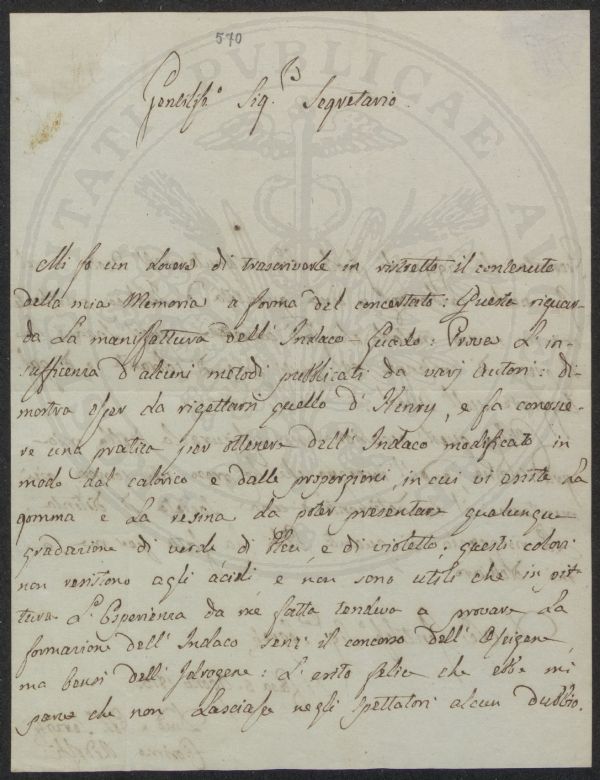 570
Gentilis.º Sig.r Segretario
Mi fo un dovere di trascriverle in ristretto il contenuto
della mia Memoria a forma del concertato: Questa riguar-
da la manifattura dell' Indaco-Guado: Prova l' in-
sufficenza d' alcuni metodi pubblicati da varj Autori: di-
mostra esser da rigettarsi quello d' Henry, e fa conosce-
re una pratica per ottenere dell' Indaco modificato in
modo dal calorico e dalle proporzioni in cui vi esiste la
gomma e la resina da poter presentare qualunque
gradazione di verde di bleu, e di violetto; questi colori
non resistono agli acidi e non sono utili che in pit-
tura. L' Esperienza da me fatta tendeva a provare la
formazione dell' Indaco senz' il concorso dell' Ossigene,
ma bensì dell' Idrogene: L' esito felice che ebbe mi
parve che non lasciasse negli spettatori alcun dubbio.